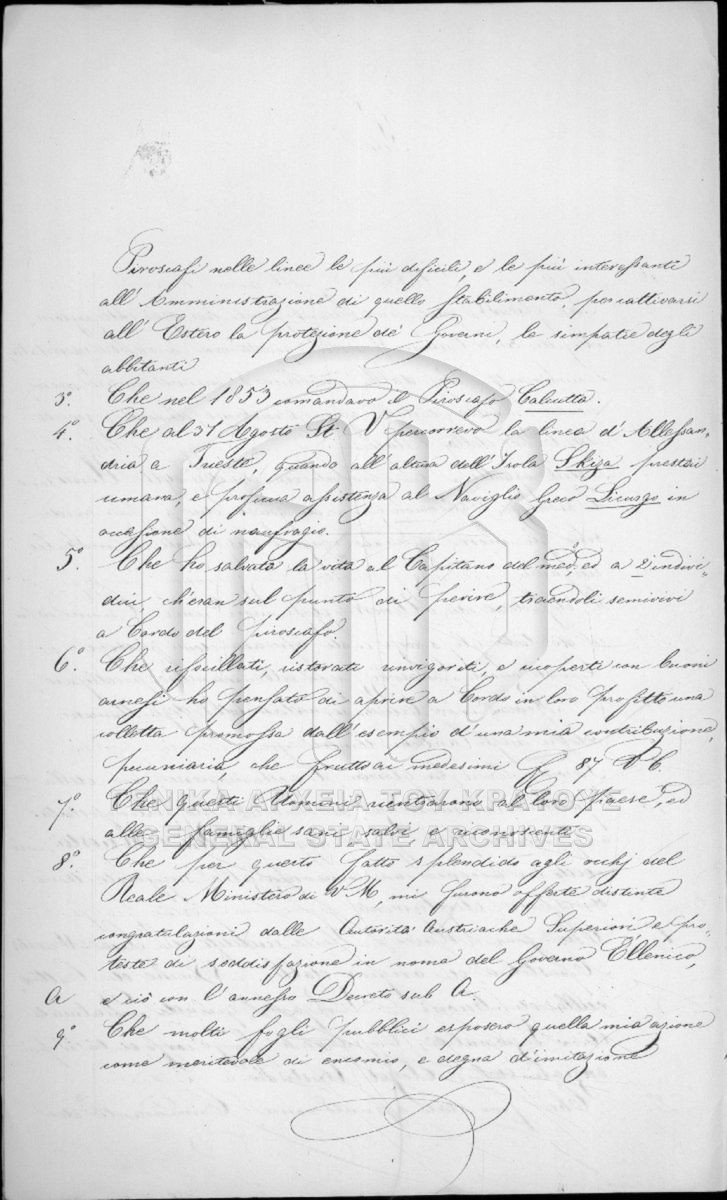 Piroscafi nelle linee le più dificili, e le più interessanti
all' Amministrazione di quello Stabilimento, per cattivarsi
all' Estero la protezione de' Governi, le simpatie degli
abbitanti
3.° Che nel 1853 comandavo il Piroscafo Calcutta.
4.° Che al 31 Agosto St. V percorrevo la linea d'Allessan-
dria a Trieste, quando all' altura dell' Isola Skiza prestai
umana, e proficua assistenza al Naviglio Greco Licurgo in
occasione di naufragio.
5.° Che ho salvata la vita al Capitano del med.°, ed a 2 indivi-
dui, ch'eran sul punto di perire, traendoli semivivi
a bordo del piroscafo.
6.° Che rifocillati, ristorati rinvigoriti, e ricoperti con buoni
arnesi ho pensato di aprire a bordo in loro profitto una
colletta promossa dall' esempio d'una mia contribuzione
pecuniaria, che fruttò ai medesimi 87
7.° Che questi Uomini rientrarono al loro paese, ed
alle famiglie sani salvi e riconoscenti
8.° Che per questo fatto splendido agli occhj del
Reale Ministero di V M, mi furono offerte distinte
congratulazioni dalle Autorità Austriache Superiori e pro-
teste di soddisfazione in nome del Governo Ellenico,
A e ciò con l'annesso Decreto sub A.
9.° Che molti fogli pubblici esposero quella mia azione
come meritevole di encomio, e degna d'imitazione
ΓΕΝΙΚΑ ΑΡΧΕΙΑ ΤΟΥ ΚΡΑΤΟΥΣ
GENERAL STATE ARCHIVES